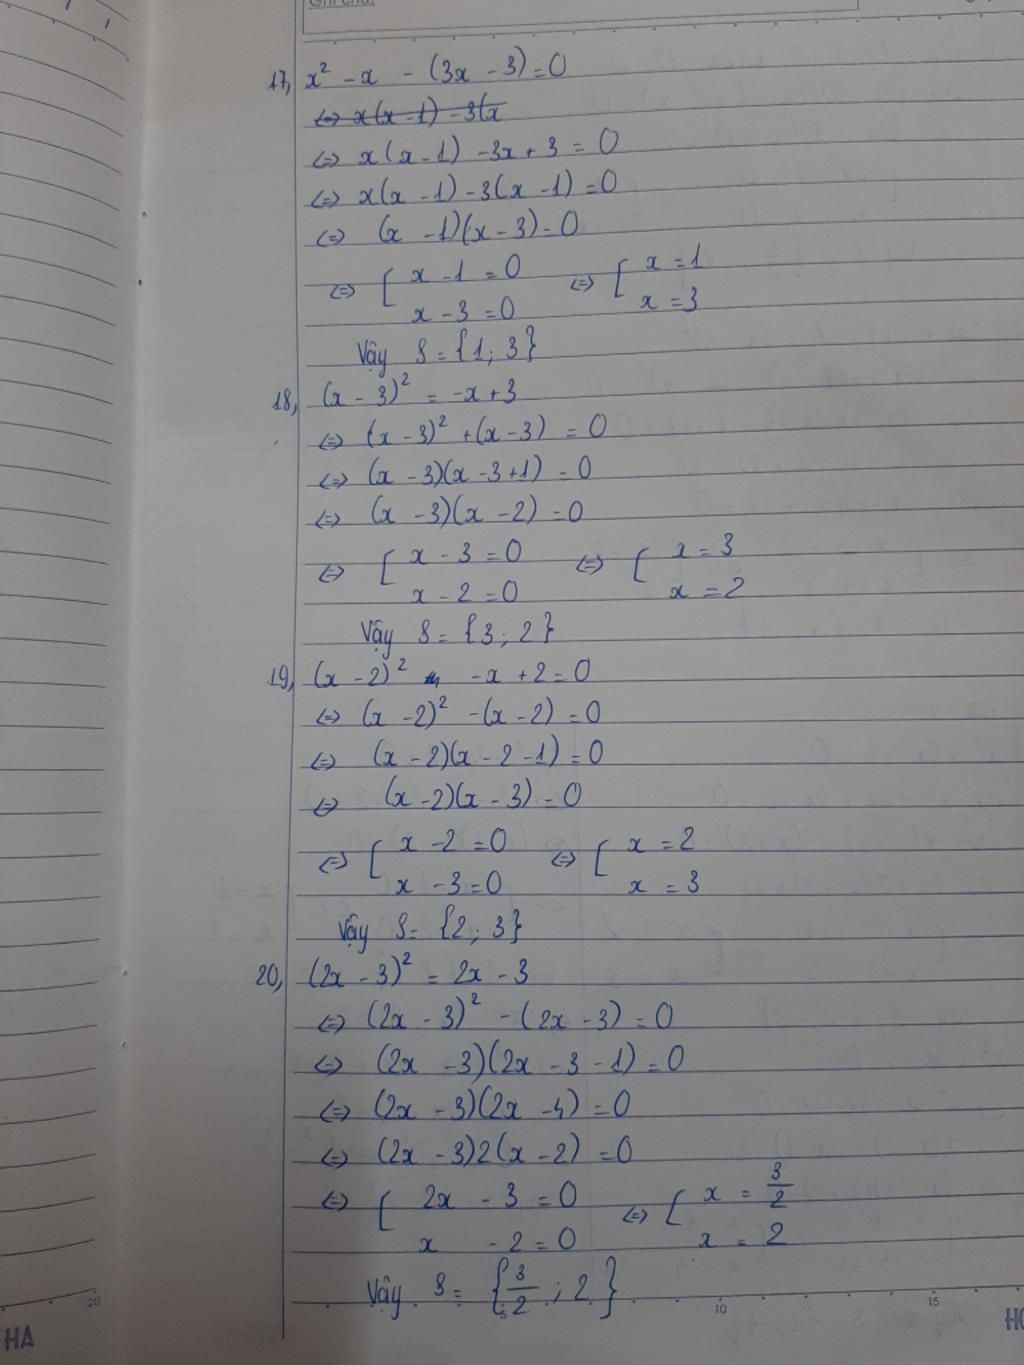 Ghi chú:
17, x² - x - (3x - 3) = 0
⇔ x(x - 1) - 3(x
⇔ x(x - 1) - 3x + 3 = 0
⇔ x(x - 1) - 3(x - 1) = 0
⇔ (x - 1)(x - 3) = 0
⇔ [ x - 1 = 0 ⇔ [ x = 1
x - 3 = 0 x = 3
Vậy S = {1; 3}
18, (x - 3)² = -x + 3
⇔ (x - 3)² + (x - 3) = 0
⇔ (x - 3)(x - 3 + 1) = 0
⇔ (x - 3)(x - 2) = 0
⇔ [ x - 3 = 0 ⇔ [ x = 3
x - 2 = 0 x = 2
Vậy S = {3; 2}
19, (x - 2)² - x + 2 = 0
⇔ (x - 2)² - (x - 2) = 0
⇔ (x - 2)(x - 2 - 1) = 0
⇔ (x - 2)(x - 3) = 0
⇔ [ x - 2 = 0 ⇔ [ x = 2
x - 3 = 0 x = 3
Vậy S = {2; 3}
20, (2x - 3)² = 2x - 3
⇔ (2x - 3)² - (2x - 3) = 0
⇔ (2x - 3)(2x - 3 - 1) = 0
⇔ (2x - 3)(2x - 4) = 0
⇔ (2x - 3)2(x - 2) = 0
⇔ [ 2x - 3 = 0 ⇔ [ x = 3/2
x - 2 = 0 x = 2
Vậy S = {3/2; 2}
20 5 10 15
HA HO